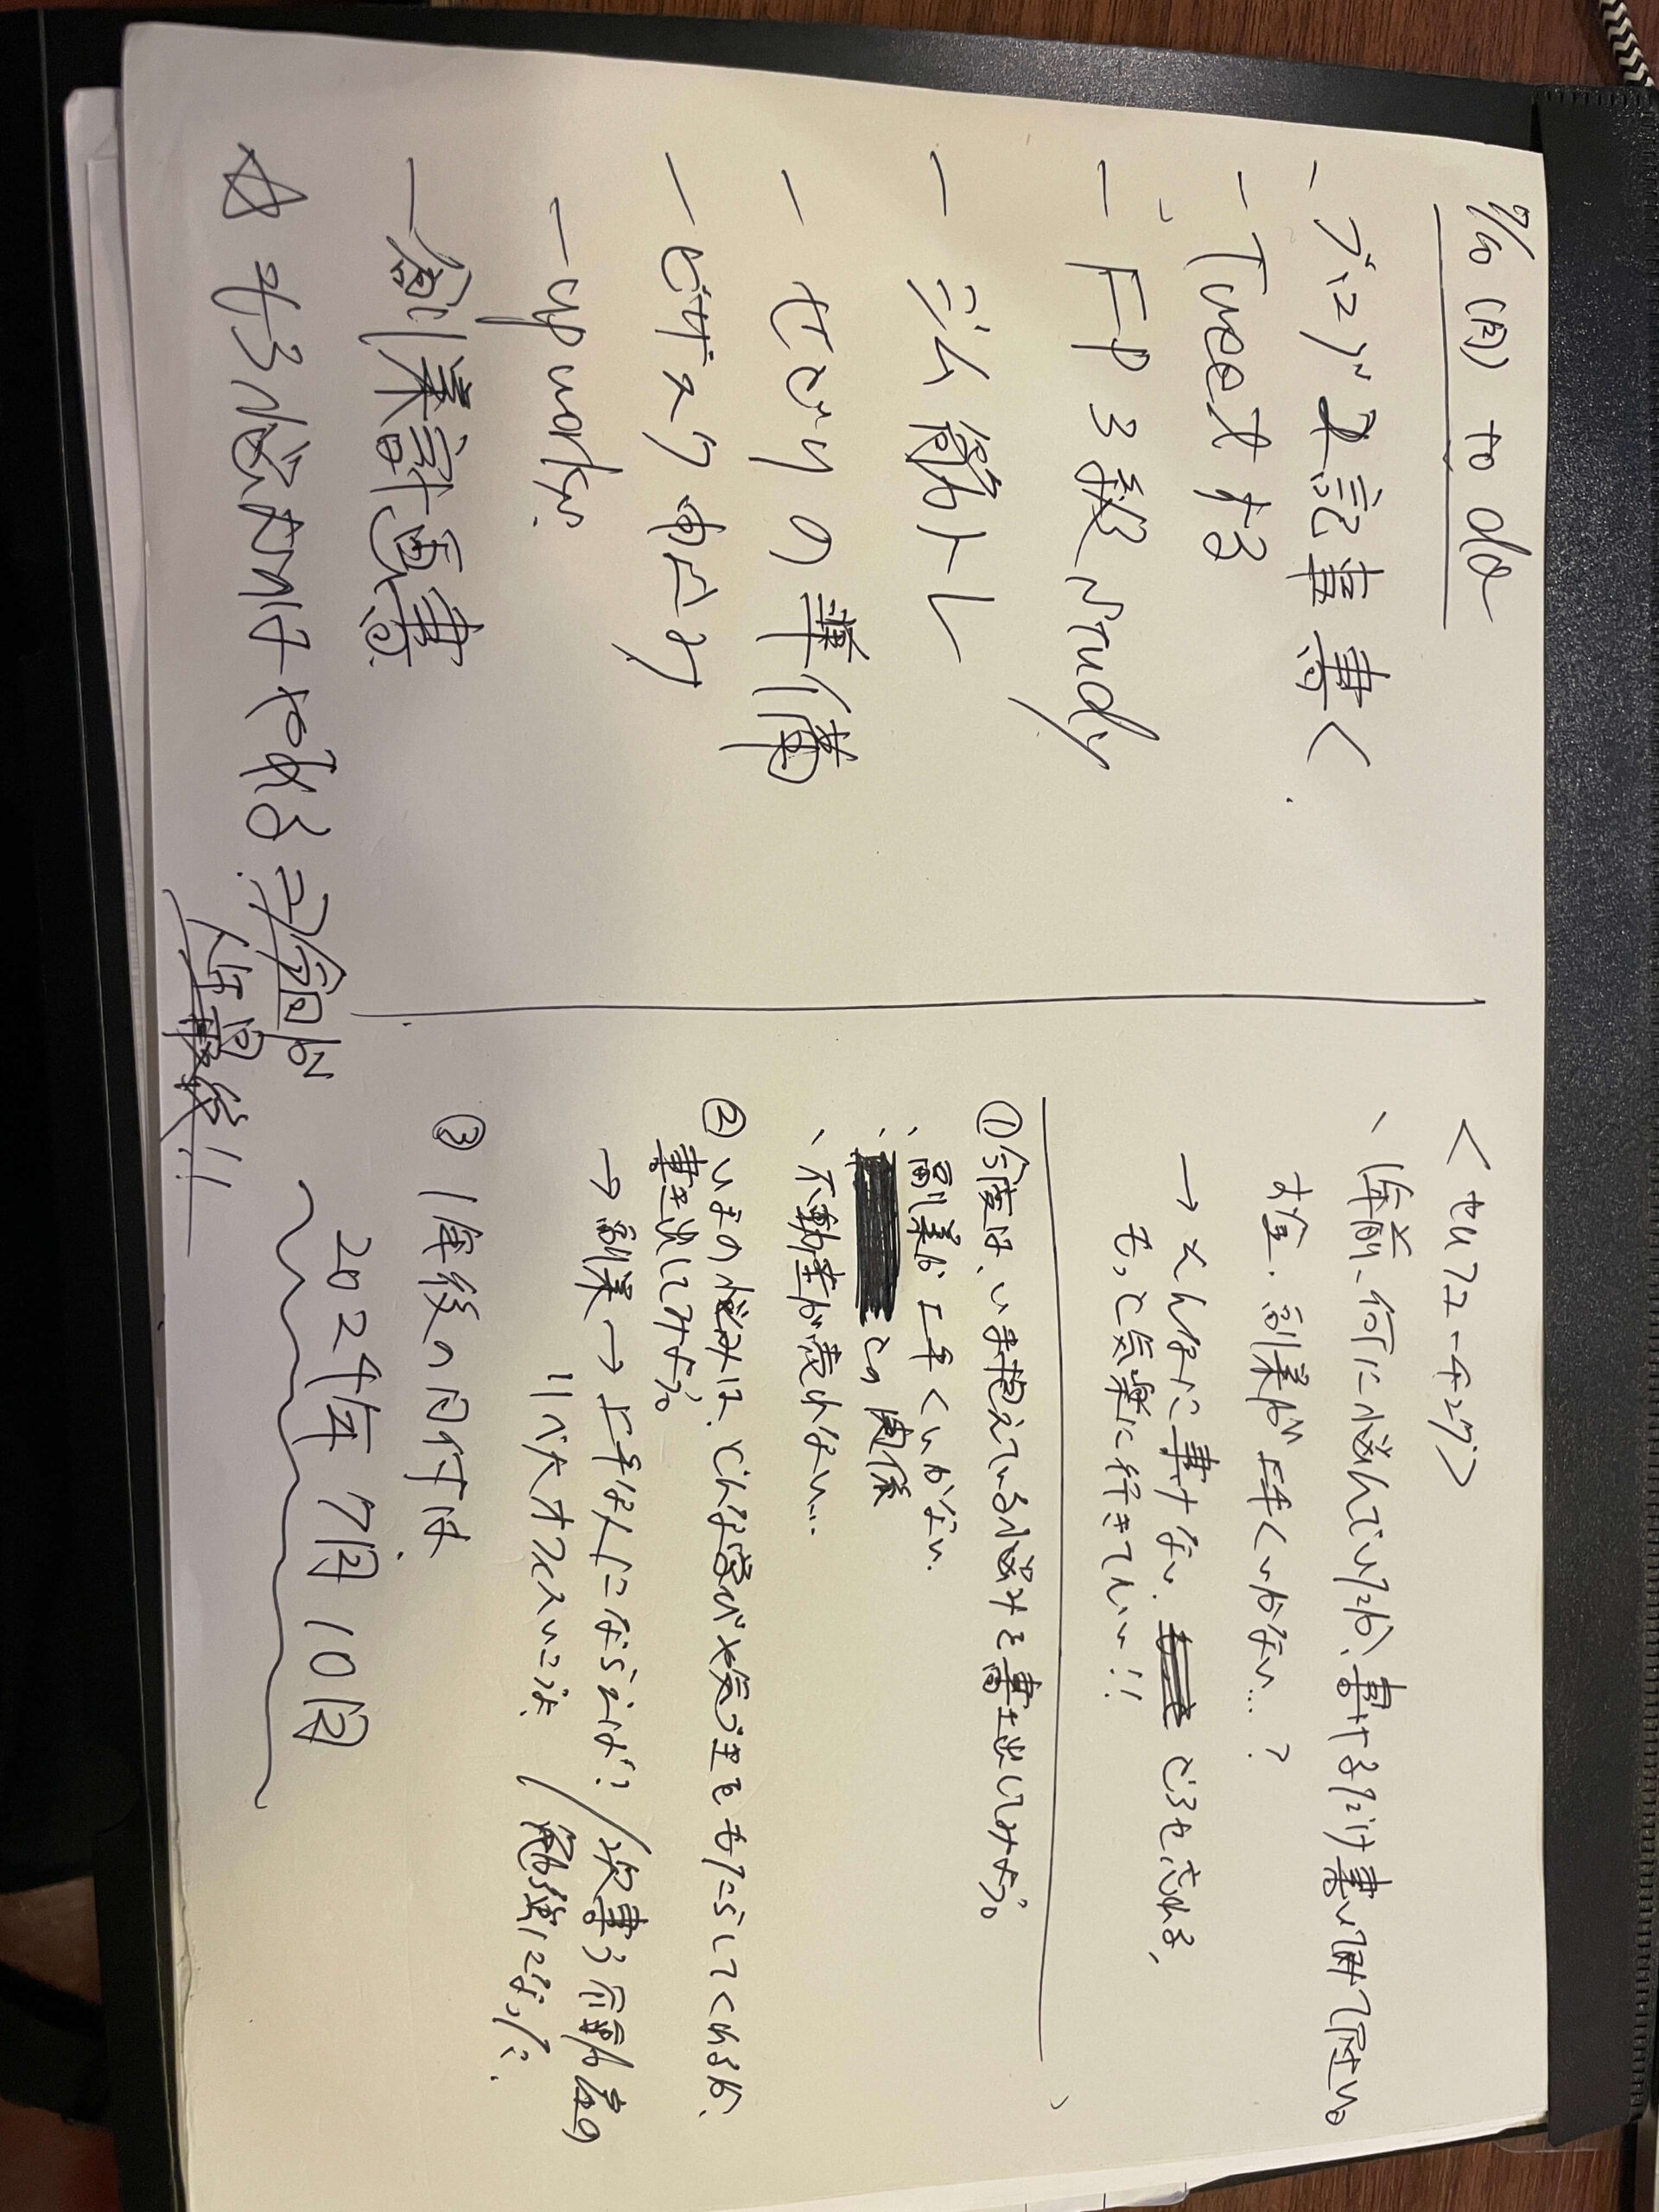 7/10 (月) to do
- ブログ 記事書く
- Tweetする
- FP3級 study
- 筋トレ
- せどりの準備
- ビザスク 申込み
- up work
- 創業計画書
☆ 考える だけ やれる
行動が
全 最後!!
<セルフコーチング>
、1年前、何に悩んでいたか、書けるだけ書いて下さい。
お金・副業が上手くいかない…?
→ そんなに書けない。どうせ忘れる、
もっと気楽に行きていい!!
①今度は、いま抱えている悩みを書き出してみよう。
、副業が上手くいかない
、との関係
、不動産が売れない…
② いまの悩みは、どんな学びや気づきをもたらしてくれるか、
書き出してみよう。
→ 副業 → 上手な人にならえば?/ 次買う不動産の
リベ大オフィスいこう /勉強になった。
③ 1年後の日付は、
2024年7月10日